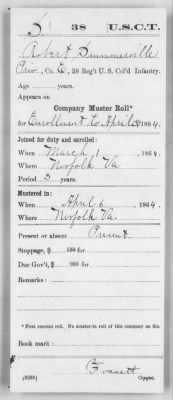 S. 38 U.S.C.T.
Robert Summerville
Priv, Co. E, 38 Reg't U.S. Col'd Infantry.
Age years.
Appears on
Company Muster Roll*
for Enrollment to April 30, 1864.
Joined for duty and enrolled:
When March 1, 1864.
Where Norfolk Va
Period 3 years.
Mustered in:
When April 6, 1864
Where Norfolk Va.
Present or absent Present.
Stoppage, $ 100 for
Due Gov't, $ 100 for
Remarks:
*First current roll. No muster-in roll of this company on file.
Book mark:
(358)
Copyist.